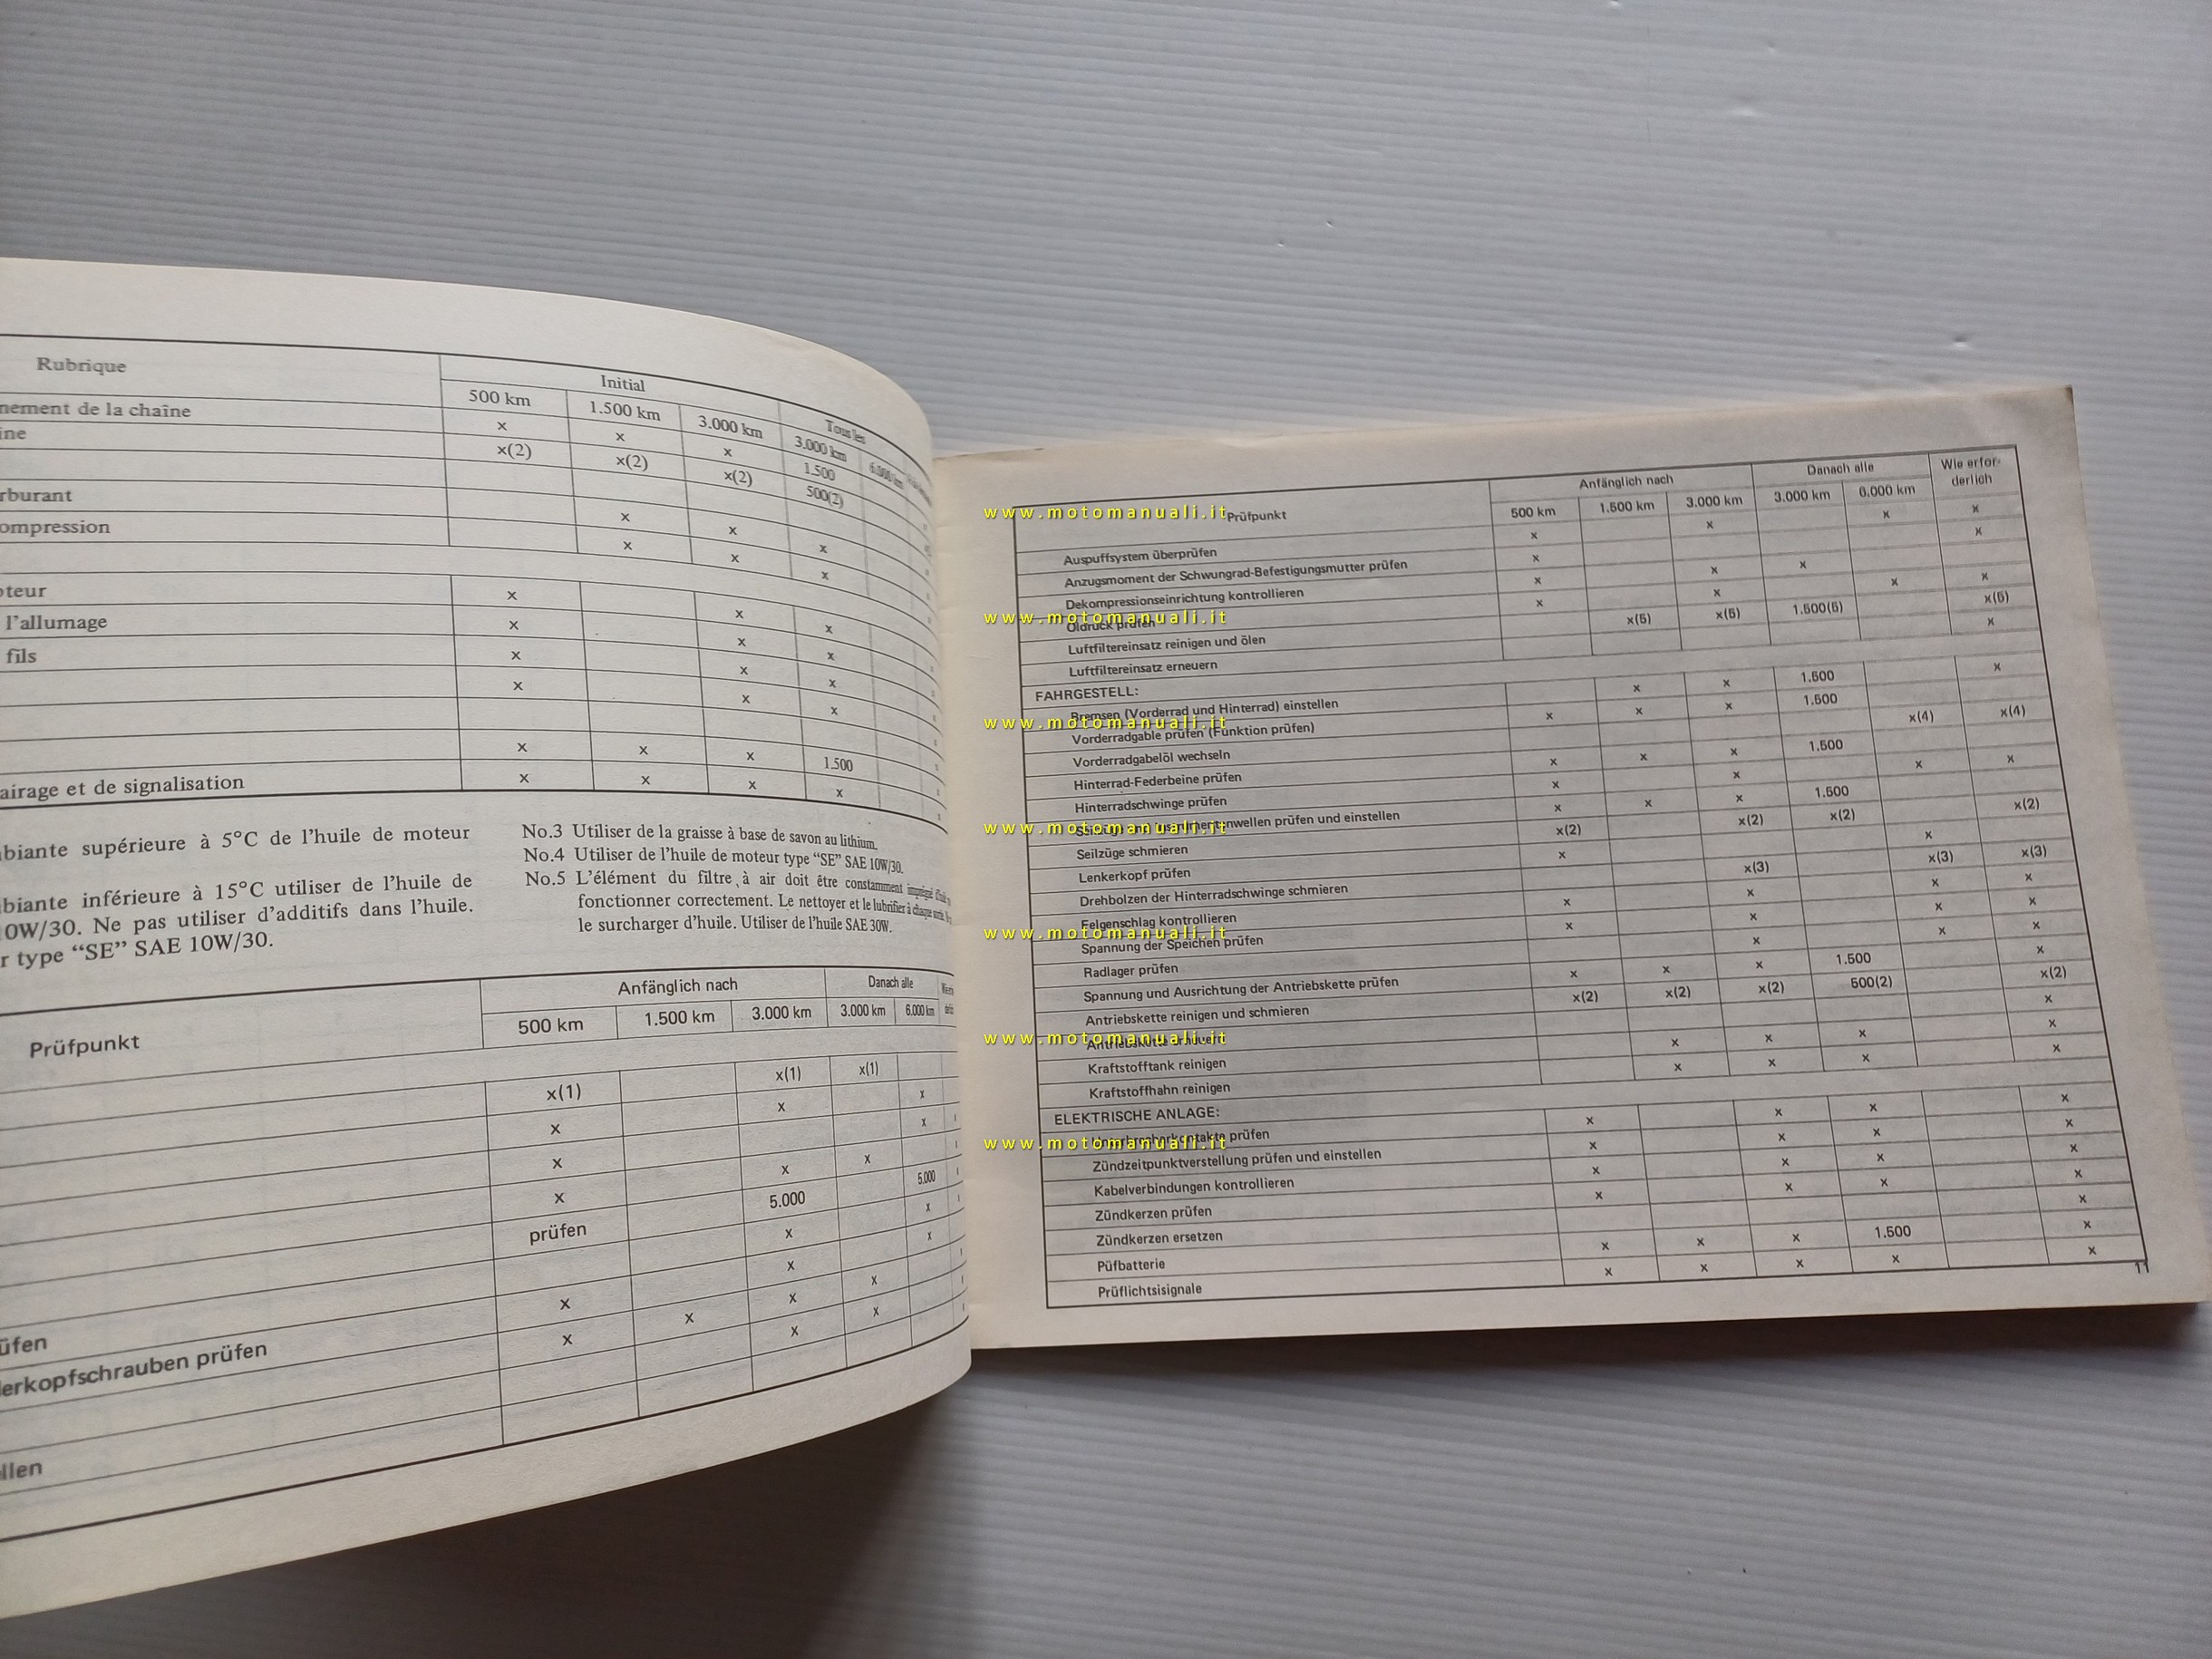 Rubrique
Initial
Tous les
500 km 1.500 km 3.000 km 3.000 km
nement de la chaîne x x x 1.500
ine x(2) x(2) x(2) 500(2)
rburant x x x
ompression x x x
oteur x x x
l'allumage x x x
fils x x x
x x x
x x x 1.500
airage et de signalisation x x x x
biante supérieure à 5°C de l'huile de moteur
biante inférieure à 15°C utiliser de l'huile de
0W/30. Ne pas utiliser d'additifs dans l'huile.
r type “SE” SAE 10W/30.
No.3 Utiliser de la graisse à base de savon au lithium.
No.4 Utiliser de l'huile de moteur type “SE” SAE 10W/30.
No.5 L'élément du filtre à air doit être constamment
fonctionner correctement. Le nettoyer et le lubrifier à chaque
le surcharger d'huile. Utiliser de l'huile SAE 30W.
Prüfpunkt
Anfänglich nach Danach alle
500 km 1.500 km 3.000 km 3.000 km 6.000 km
x(1) x(1) x(1)
x x x
x x
x x x
prüfen 5.000 5.000
x x
x x
üfen x x x
erkopfschrauben prüfen x x x x
llen
Prüfpunkt
Anfänglich nach Danach alle Wie erfor-
derlich
500 km 1.500 km 3.000 km 3.000 km 6.000 km
Auspuffsystem überprüfen x x x x
Anzugsmoment der Schwungrad-Befestigungsmutter prüfen x x
Dekompressionseinrichtung kontrollieren x x x
Öldruck prüfen x x x x
Luftfiltereinsatz reinigen und ölen x(5) x(5) 1.500(5) x(5)
Luftfiltereinsatz erneuern x
FAHRGESTELL:
Bremsen (Vorderrad und Hinterrad) einstellen x x 1.500 x
Vorderradgable prüfen (Funktion prüfen) x x x 1.500
Vorderradgabelöl wechseln x(4) x(4)
Hinterrad-Federbeine prüfen x x x 1.500
Hinterradschwinge prüfen x x x x
prüfen und einstellen x x x 1.500
Seilzüge schmieren x(2) x(2) x(2) x(2)
Lenkerkopf prüfen x x
Drehbolzen der Hinterradschwinge schmieren x(3) x(3) x(3)
Felgenschlag kontrollieren x x x x
Spannung der Speichen prüfen x x x x
Radlager prüfen x x x
Spannung und Ausrichtung der Antriebskette prüfen x x x 1.500 x
Antriebskette reinigen und schmieren x(2) x(2) x(2) 500(2) x(2)
x
Kraftstofftank reinigen x x x x
Kraftstoffhahn reinigen x x x x
ELEKTRISCHE ANLAGE:
prüfen x x x x
Zündzeitpunktverstellung prüfen und einstellen x x x x
Kabelverbindungen kontrollieren x x x x
Zündkerzen prüfen x x x x
Zündkerzen ersetzen x
Püfbatterie x x x 1.500 x
Prüflichtsisignale x x x x x
11
www.motomanuali.it
www.motomanuali.it
www.motomanuali.it
www.motomanuali.it
www.motomanuali.it
www.motomanuali.it
www.motomanuali.it